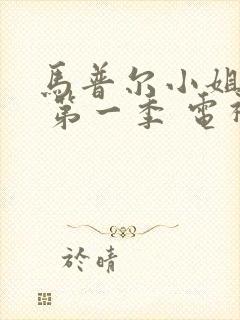 馬普尔小姐
第一季 電
於晴